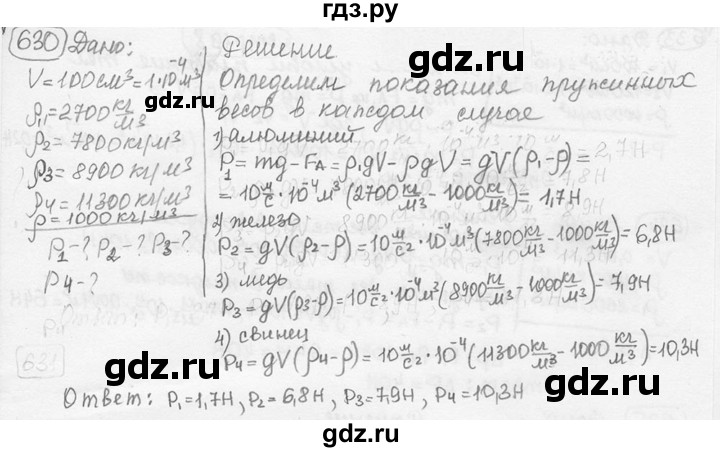 гдз.ру
630 Дано:
V=100см³=1·10⁻⁴м³
ρ₁=2700 кг/м3
ρ2=7800кг/м3
ρ3=8900кг/м3
ρ4=11300кг/м3
ρ=1000кг/м3
P1-? P2-? P3-?
P4-?
Решение
Определим показания пружинных
весов в каждом случае
1) алюминий
P1=mg-FA=ρ₁gV-ρgV=gV(ρ₁-ρ)=
=10 м/с · 10⁻⁴м³(2700 кг/м3 -1000 кг/м3)=1,7Н
2) железо
P2=gV(ρ2-ρ)=10 м/с2 · 10⁻⁴м³(7800 кг/м3 -1000 кг/м3)=6,8Н
3) медь
P3=gV(ρ3-ρ)=10 м/с2 · 10⁻⁴м³(8900 кг/м3 -1000 кг/м3)=7,9Н
4) свинец
P4=gV(ρ4-ρ)=10 м/с2 · 10⁻⁴(11300 кг/м3 -1000 кг/м3)=10,3Н
Ответ: P₁=1,7Н, P2=6,8Н, P3=7,9Н, P4=10,3Н
gdz.ru
gdz.ru
gdz.ru
gdz.ru